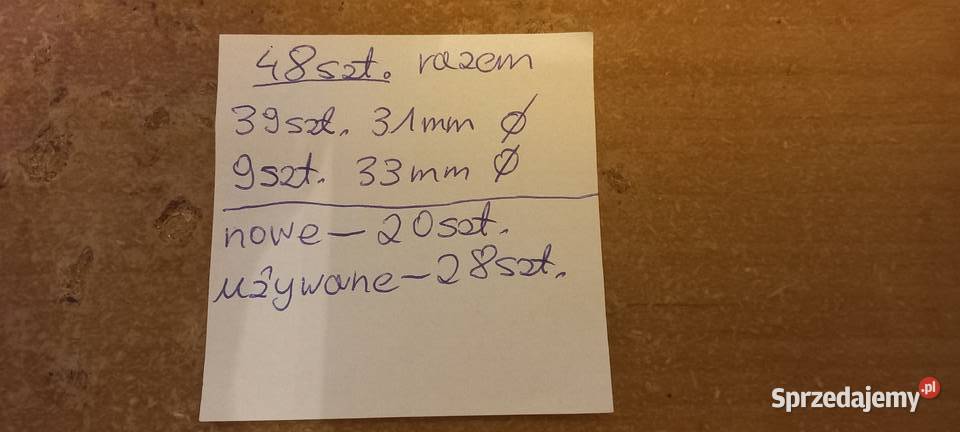 48szt. razem
39szt. 31mm Ø
9szt. 33mm Ø
nowe – 20szt.
używane – 28szt.
Sprzedajemy.pl